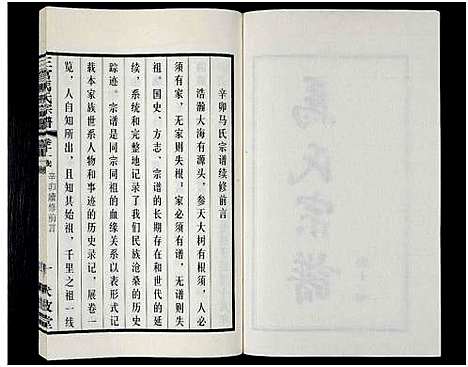 辛卯马氏宗谱续修前言
浩瀚大海有源头，参天大树有根须，人必
须有家，无家则失根。家必须有谱，无谱则失
祖。国史、方志、宗谱的长期存在和世代的延
续，系统和完整地记录了我们民族沧桑的历史
踪迹。宗谱是同宗同祖的血缘关系以表形式记
载本家族世系人物和事迹的历史录记，展卷一
览，人自知其始祖，千里之祖一线
三官马氏宗谱
辛卯续修前言
一
马氏宗谱